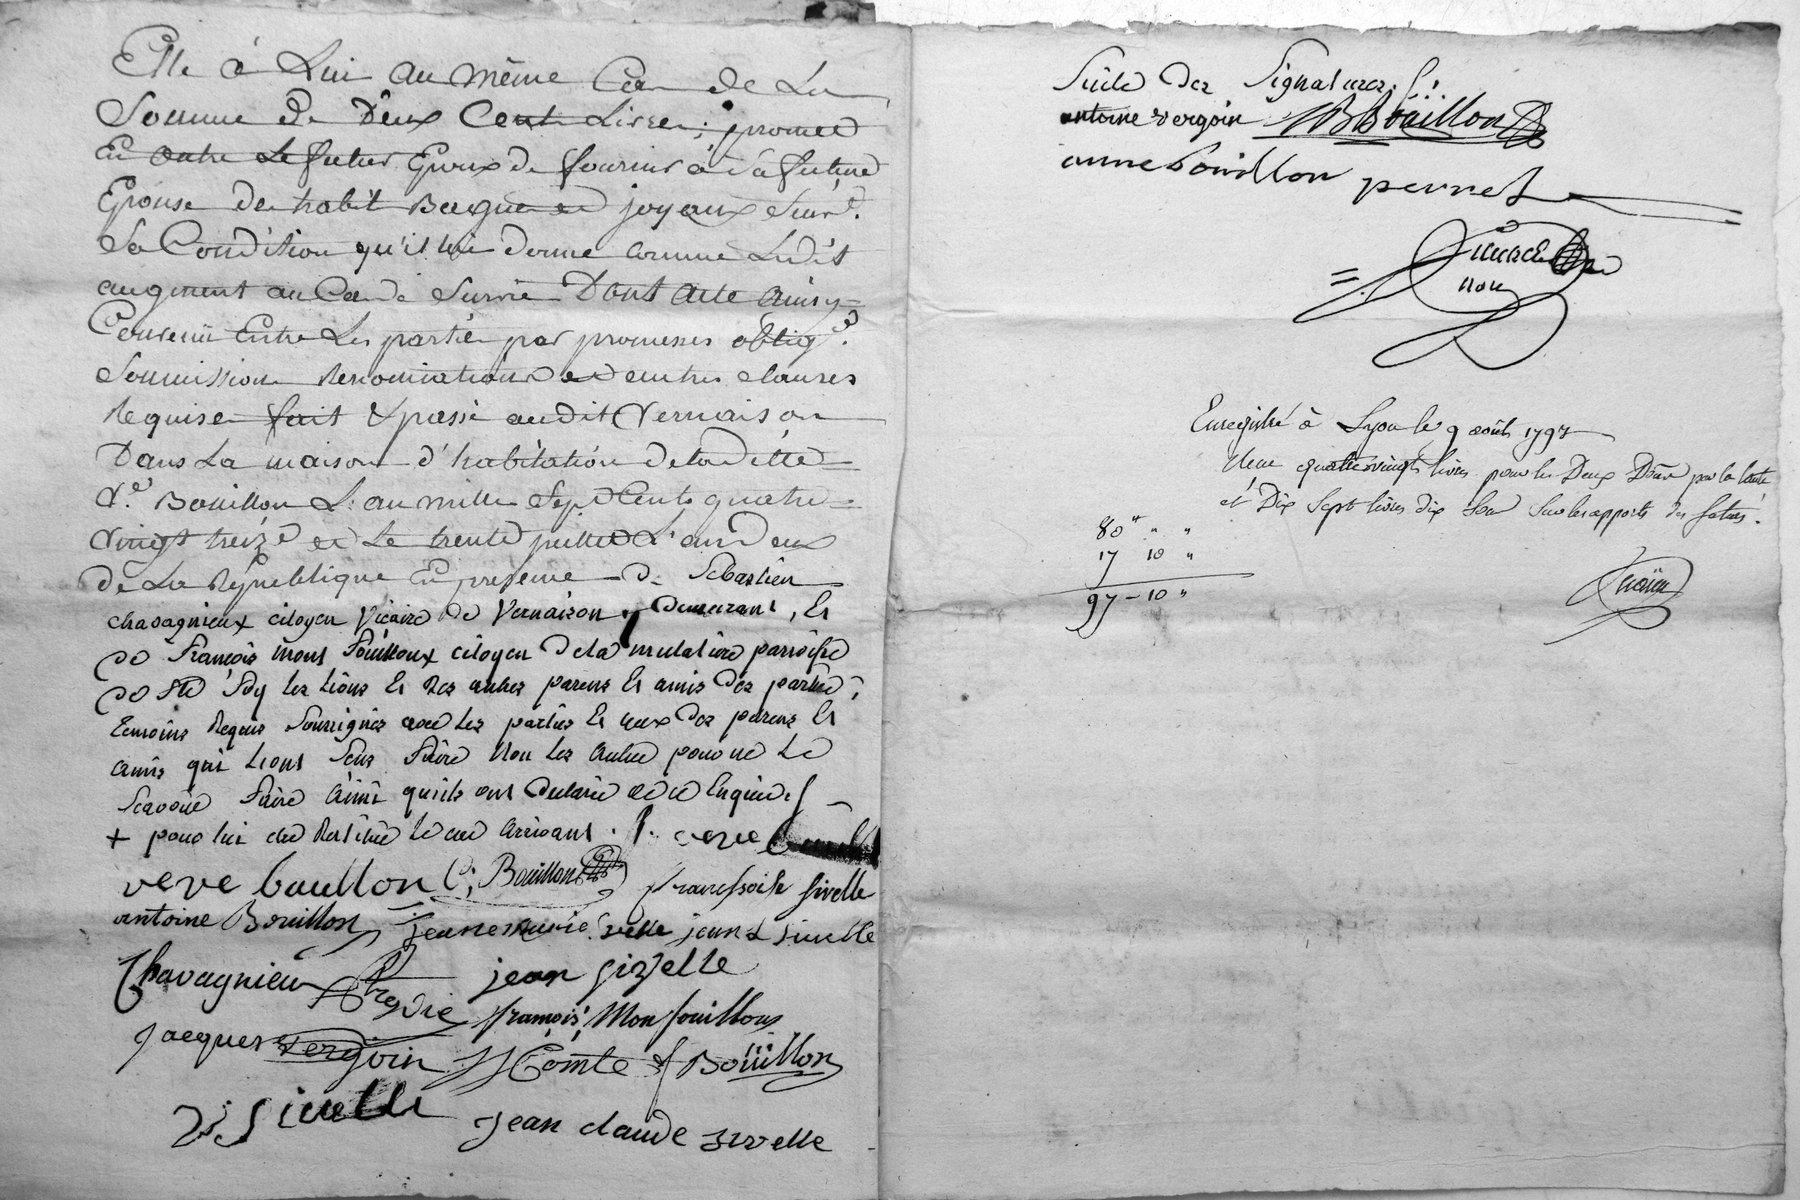 Elle à Lui au même Cas de La
Somme de Deux Cent Livres; promet
En outre Le futur Epoux de fournir à sa future
Epouse des habit Bagues et joyaux Suivt.
Sa Condition qu'il lui donne comme Ledit
augment au Cas de Survie Dont Acte Ainsy
Convenu Entre Les parties par promesses obligons.
Soumissions Renonciations et autres clauses
Requises fait & passé audit Vernaison
Dans La maison d'habitation de laditte
Ve. Bouillon L'an mille Sept Cents quatre
vingt treize et Le trente juillet L'an Deux
de La République En presence de Sébastien
chavagnieux citoyen Vicaire de Vernaison y Demeurant, Et
de François mont fouilloux citoyen de la mulatiere parroisse
de Ste foy les Lions Et des autres parens Et amis des parties,
temoins Requis Soussignés avec les parties Et ceux des parens Et
amis qui Lions Sçus faire non les autres pour ne Le
Sçavoir faire Ainsi qu'ils ont declaré de ce Enquis
+ pour lui être Restitué le cas arrivant. veve
veve boullon C. Bouillon fransoise sivelle
antoine Bouillon jeanemarie sivelle jean sivelle
Chavagnieux jean sizelle
françois Monfouilloux
jacques vergoin Comte Boüillon
Sivelle jean claude sivelle
Suite des Signatures
antoine vergoin B Boüillon
anne bouillon perret
Enregistré à Lyon le 9 août 1793
Reçu quatrevingt livres pour les Deux Dons par la tante
et Dix Sept livres dix sous Sur les apports des futurs.
80 " "
17 10 "
97 - 10 "